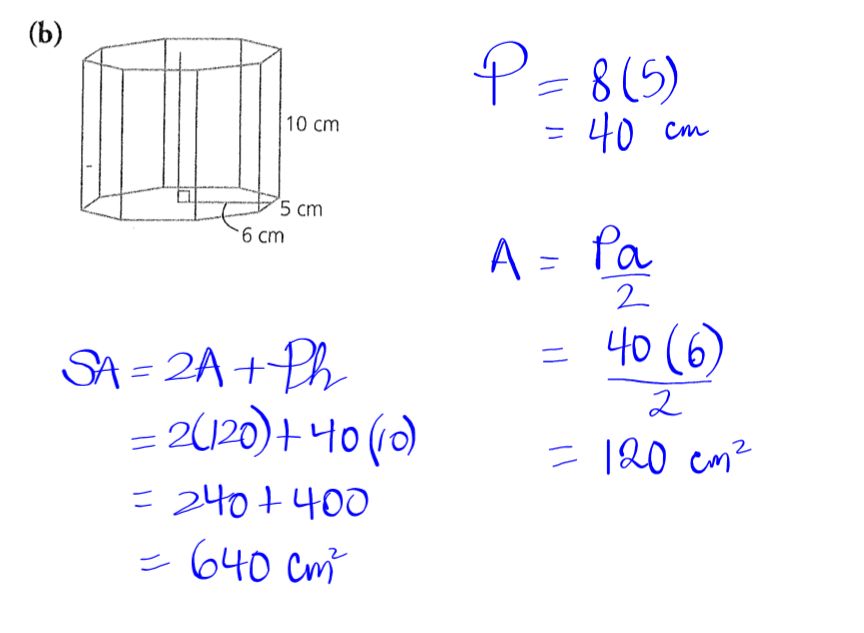 (b)
10 cm
5 cm
6 cm
P = 8(5)
= 40 cm
A = Pa/2
= 40(6)/2
= 120 cm²
SA = 2A + Ph
= 2(120) + 40(10)
= 240 + 400
= 640 cm²